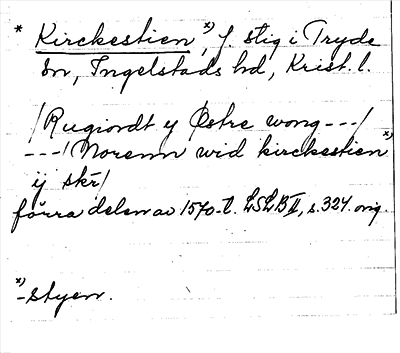 * Kirckestien x), f. stig i Tryde
sn, Ingelstads hd, Krist. l.
/Rugiordt y Østre wong ---/
---/Norenn wid kirckestien x)
ij skr/
förra delen av 1570-t. LSLB II, s. 324. orig.
x) -styen.